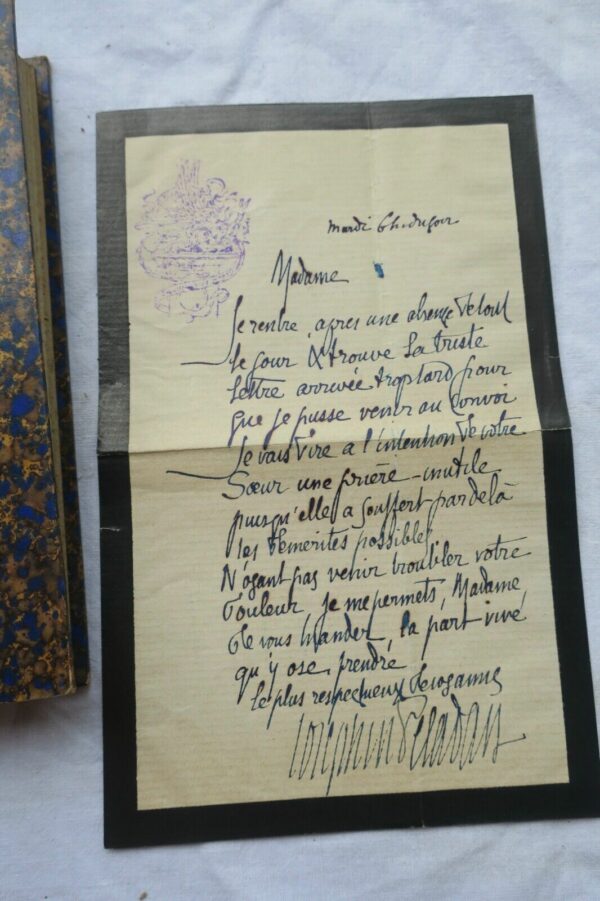 mardi 6h du soir
Madame
Je rentre, apres une absence de tout
le jour & trouve la triste
lettre arrivée trop tard pour
que je pusse venir au convoi
Je vais dire a l'intention de votre
Sœur une prière - inutile
puisqu'elle a souffert par delà
les démérites possibles
N'osant pas venir troubler votre
douleur, je me permets, Madame,
de vous mander, la part vive
qu'y ose prendre
le plus respectueux de vos amis
Joséphin Péladan